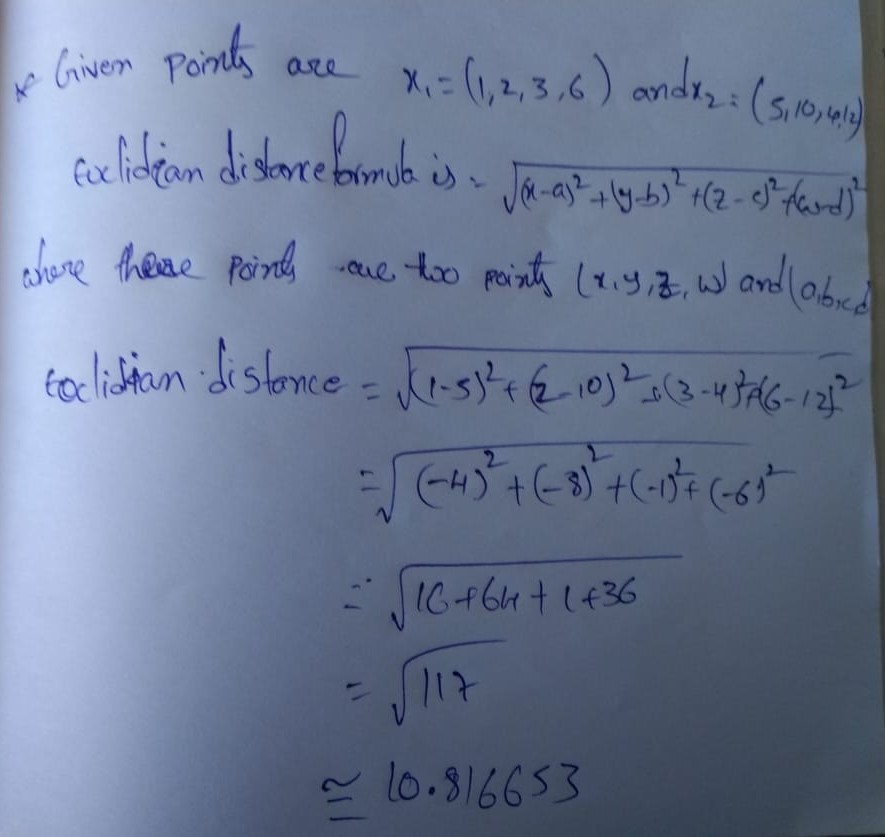 * Given points are x₁ = (1, 2, 3, 6) and x₂ = (5, 10, 4, 12)
Euclidian distance formula is = √(x-a)² + (y-b)² + (z-c)² + (w-d)²
where these points are two points (x, y, z, w) and (a, b, c, d
Euclidian distance = √(1-5)² + (2-10)² + (3-4)² + (6-12)²
= √(-4)² + (-8)² + (-1)² + (-6)²
= √16+64+1+36
= √117
≅ 10.816653